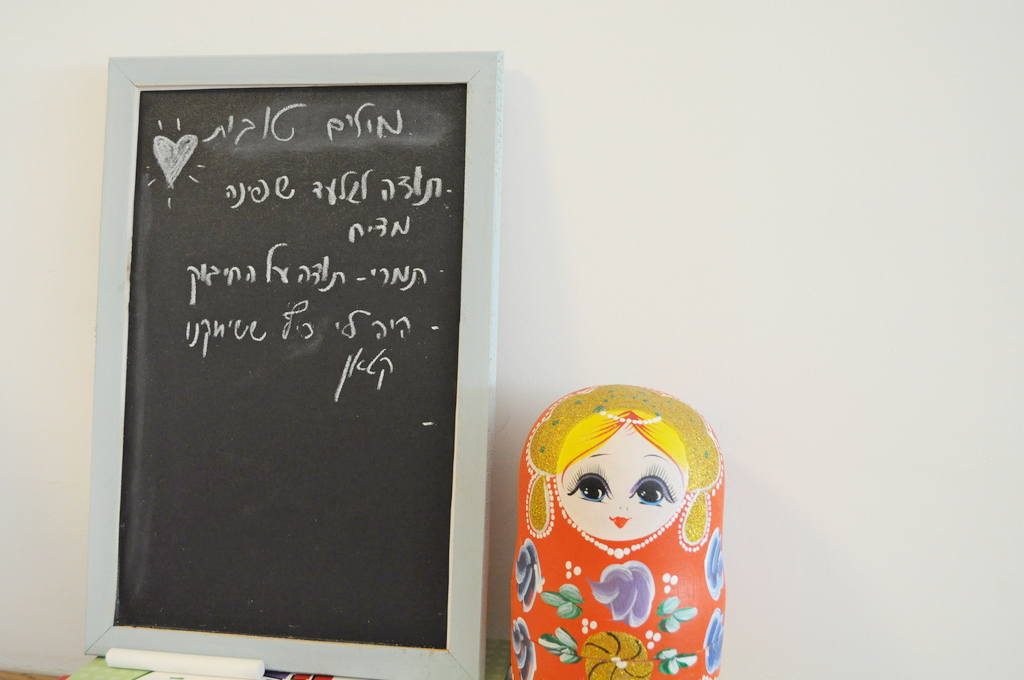 מילים טובות
- תודה לאלעד שפינה
מדיח
- תמרי - תודה על החיבוק
- היה לי כיף ששיחקנו
קטאן
-